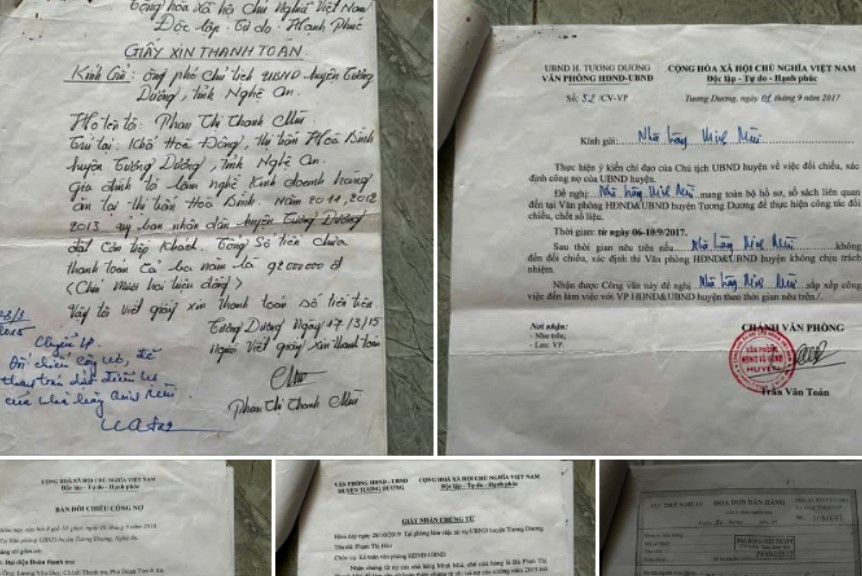 Cộng hòa xã hội Chủ Nghĩa Việt Nam
Độc lập - Tự do - Hạnh Phúc
GIẤY XIN THANH TOÁN
Kính Gửi: ông phó Chủ tịch UBND huyện Tương
Dương, tỉnh Nghệ An.
Họ tên tôi: Phan Thị Thanh Mùi
Trú tại: Khối Hoà Đông, thị trấn Hoà Bình
huyện Tương Dương, tỉnh Nghệ An.
gia đình tôi làm nghề Kinh doanh hàng
ăn tại thị trấn Hoà Bình. Năm 2011, 2012
2013 uỷ ban nhân dân huyện Tương Dương
đặt Cơm tiếp Khách. Tổng Số tiền chưa
thanh toán cả ba năm là 92000000 đ
(Chín mươi hai triệu đồng)
Vậy tôi viết giấy xin thanh toán số tiền trên
Tương Dương Ngày 17/3/15
Người Viết giấy xin thanh toán
Phan Thị Thanh Mùi
23/3
2015
Chuyển VP.
Đối chiếu Công nợ, để
thanh toán
của nhà hàng
UBND H. TƯƠNG DƯƠNG
VĂN PHÒNG HĐND-UBND
Số: 52 /CV-VP
CỘNG HÒA XÃ HỘI CHỦ NGHĨA VIỆT NAM
Độc lập - Tự do - Hạnh phúc
Tương Dương, ngày 01 tháng 9 năm 2017
Kính gửi: Nhà hàng Minh Mùi
Thực hiện ý kiến chỉ đạo của Chủ tịch UBND huyện về việc đối chiếu, xác
định công nợ của UBND huyện.
Đề nghị: Nhà hàng Minh Mùi mang toàn bộ hồ sơ, sổ sách liên quan
đến tại Văn phòng HĐND&UBND huyện Tương Dương để thực hiện công tác đối
chiếu, chốt số liệu.
Thời gian: từ ngày 06-10/9/2017.
Sau thời gian nêu trên nếu Nhà hàng Minh Mùi không
đến đối chiếu, xác định thì Văn phòng HĐND&UBND huyện không chịu trách
nhiệm.
Nhận được Công văn này đề nghị Nhà hàng Minh Mùi sắp xếp công
việc đến làm việc với VP HĐND&UBND huyện theo thời gian nêu trên./.
Nơi nhận:
- Như trên;
- Lưu: VP.
CHÁNH VĂN PHÒNG
VĂN PHÒNG
HĐND VÀ UBND
HUYỆN
Trần Văn Toản
CỘNG HÒA XÃ HỘI CHỦ NGHĨA VIỆT NAM
Độc lập - Tự do - Hạnh phúc
BẢN ĐỐI CHIẾU CÔNG NỢ
VĂN PHÒNG HĐND - UBND
HUYỆN TƯƠNG DƯƠNG
CỘNG HÒA XÃ HỘI CHỦ NGHĨA VIỆT NAM
Độc lập - Tự do - Hạnh phúc
GIẤY NHẬN CHỨNG TỪ
Hôm nay ngày 28/10/2019 Tại phòng làm việc tài vụ UBND huyện Tương Dương
Tên tôi: Phạm Thị Hảo
Chức vụ: Kế toán văn phòng HĐND-UBND
HOÁ ĐƠN BÁN HÀNG